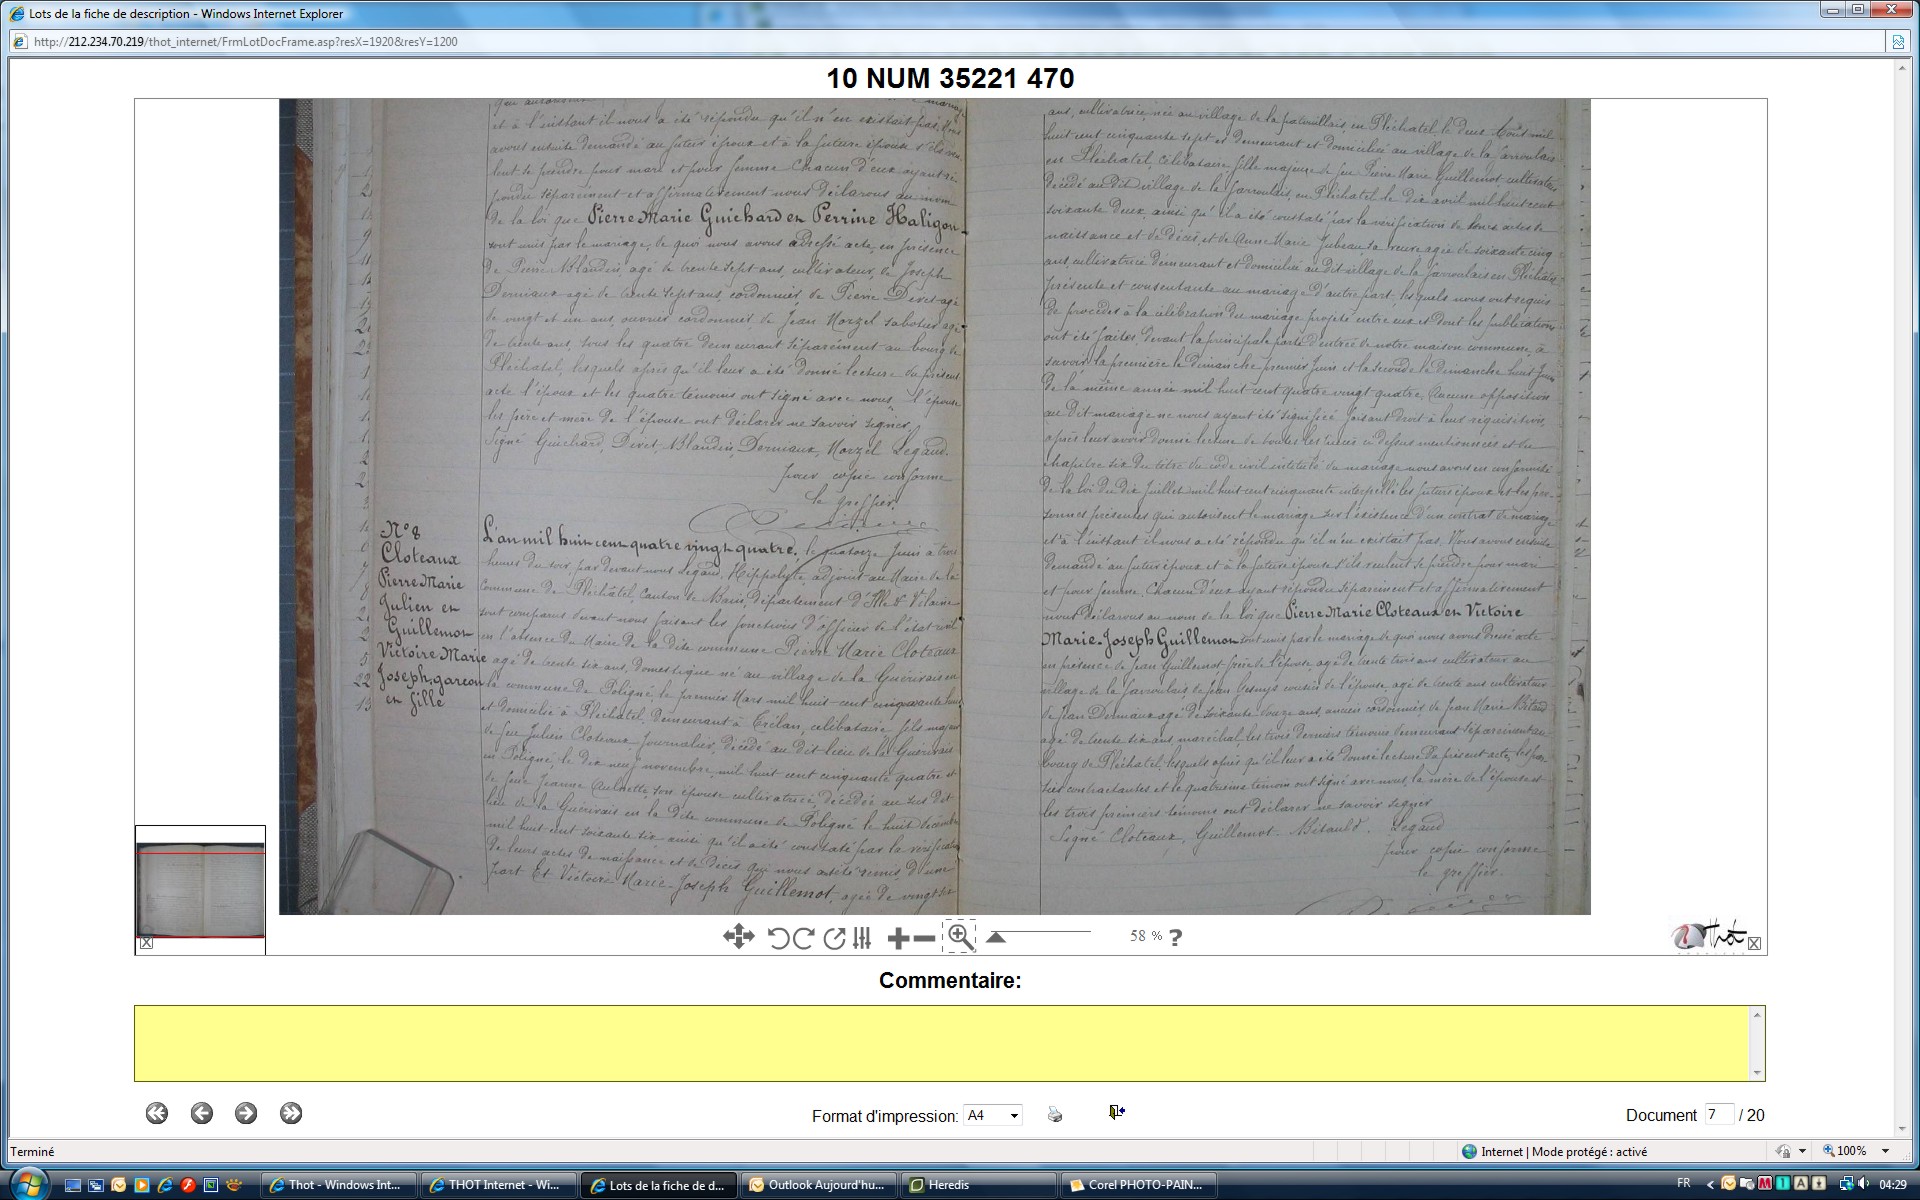 Lots de la fiche de description - Windows Internet Explorer
http://212.234.70.219/thot_internet/FrmLotDocFrame.asp?resX=1920&resY=1200
10 NUM 35221 470
et à l'instant il nous a été répondu qu'il n'en existait pas, Nous
avons ensuite demandé au futur époux et à la future épouse s'ils veu
lent se prendre pour mari et pour femme Chacun d'eux ayant ré
pondu séparément et affirmativement nous déclarons au nom
de la loi que Pierre Marie Guichard en Perrine Haligon
sont unis par le mariage, de quoi nous avons adressé acte, en présence
de Pierre Blandin, agé de trente sept ans, cultivateur, de Joseph
Derniaux agé de trente sept ans, cordonnier, de Pierre Divet agé
de vingt et un ans, ouvrier cordonnier, de Jean Morzel sabotier agé
de trente ans, tous les quatre demeurant séparément au bourg de
Pléchatel, lesquels après qu'il leur a été donné lecture du présent
acte l'époux et les quatre témoins ont signé avec nous, l'épouse
les père et mère de l'épouse ont déclarer ne savoir signer
Signé Guichard, Divet, Blandin, Derniaux, Morzel Legaud.
pour copie conforme
le greffier
N° 8
Cloteaux
Pierre Marie
Julien en
Guillemot
Victoire Marie
Joseph, garcon
en fille
L'an mil huit cent quatre vingt quatre, le quatorze Juin à trois
heures du soir, par devant nous Legaud, Hippolyte, adjoint au Maire de la
Commune de Pléchâtel, Canton de Bain, département d'Ille & Vilaine
sont comparus devant nous faisant les fonctions d'officier de l'état civil
en l'absence du Maire de la dite commune Pierre Marie Cloteaux
agé de trente six ans, domestique né au village de la Guérivais en
la commune de Poligné le premier Mars mil huit cent cinquante
et domicilié à Pléchatel, demeurant à Trélan, célibataire fils majeur
de feu Julien Cloteaux Journalier, décédé au dit lieu de la Guérivais
en Poligné, le dix neuf novembre mil huit cent cinquante quatre et
de feue Jeanne Aulnette son épouse cultivatrice, décédée au sus dit
lieu de la Guérivais en la dite commune de Poligné le huit décembre
mil huit cent soixante six, ainsi qu'il a été constaté par la vérification
de leurs actes de naissance et de décès qui nous a été remis, d'une
part Et Victoire Marie Joseph Guillemot, agée de vingt six
ans, cultivatrice, née au village de la en Pléchatel le deux Août mil
huit cent cinquante sept et demeurant et domiciliée au village de la
en Pléchatel, célibataire fille majeure de feu Pierre Marie Guillemot cultivateur
décédé au dit village de la en Pléchatel le dix avril mil huit cent
soixante deux, ainsi qu'il a été constaté par la vérification de leurs actes de
naissance et de décès, et de Anne Marie Jubeau, sa veuve agée de soixante cinq
ans, cultivatrice demeurant et domiciliée au dit village de la en Pléchatel
présente et consentante au mariage d'autre part, lesquels nous ont requis
de procéder à la célébration du mariage projeté entre eux et dont les publications
ont été faites devant la principale porte d'entrée de notre maison commune, à
savoir la première le dimanche premier Juin et la seconde le dimanche huit Juin
de la même année mil huit cent quatre vingt quatre. Aucune opposition
au dit mariage ne nous ayant été signifiée faisant droit à leur réquisition,
après leur avoir donné lecture de toutes les pièces ci dessus mentionnées et du
chapitre six du titre du code civil intitulé du mariage nous avons en conformité
de la loi du dix Juillet mil huit cent cinquante interpellé les futurs époux et les per
sonnes présentes qui autorisent le mariage sur l'existence d'un contrat de mariage
et à l'instant il nous a été répondu qu'il n'en existait pas, Nous avons ensuite
demandé au futur époux et à la future épouse s'ils veulent se prendre pour mari
et pour femme, Chacun d'eux ayant répondu séparément et affirmativement
nous déclarons au nom de la loi que Pierre Marie Cloteaux en Victoire
Marie Joseph Guillemot sont unis par le mariage de quoi nous avons dressé acte
en présence de Jean Guillemot frère de l'épouse, agé de trente trois ans cultivateur au
village de la de Jean cousin de l'épouse agé de trente ans cultivateur
de Jean Dermiaux agé de soixante douze ans, ancien cordonnier, de Jean Marie Bitaud
agé de trente six ans, maréchal, les trois derniers témoins demeurant séparément au
bourg de Pléchatel, lesquels après qu'il leur a été donné lecture du présent acte, les par
ties contractantes et le quatrième témoin ont signé avec nous, la mère de l'épouse et
les trois premiers témoins ont déclarer ne savoir signer
Signé Cloteaux, Guillemot, Bitauld, Legaud
pour copie conforme
le greffier.
58 % ?
Thot
Commentaire:
Format d'impression: A4
Document 7 / 20
Terminé
Internet | Mode protégé : activé
100%
Thot - Windows Int...
THOT Internet - Wi...
Lots de la fiche de d...
Outlook Aujourd'hu...
Heredis
Corel PHOTO-PAIN...
FR
04:29